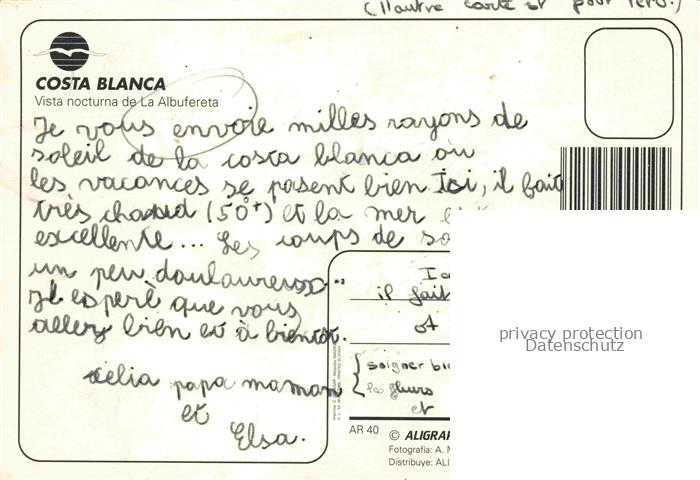 (l'autre carte est pour
COSTA BLANCA
Vista nocturna de La Albufereta
Je vous envoie milles rayons de
soleil de la costa blanca où
les vacances se passent bien Ici, il fait
très chaud (50°+) et la mer
excellente... Les coups de
un peu
Je esperè que vous
allez bien et à bientôt.
papa maman
et
Elsa.
il fait
et
soigner
et
AR 40 © ALIGRAF
Fotografía: A. M
Distribuye: ALI
privacy protection
Datenschutz